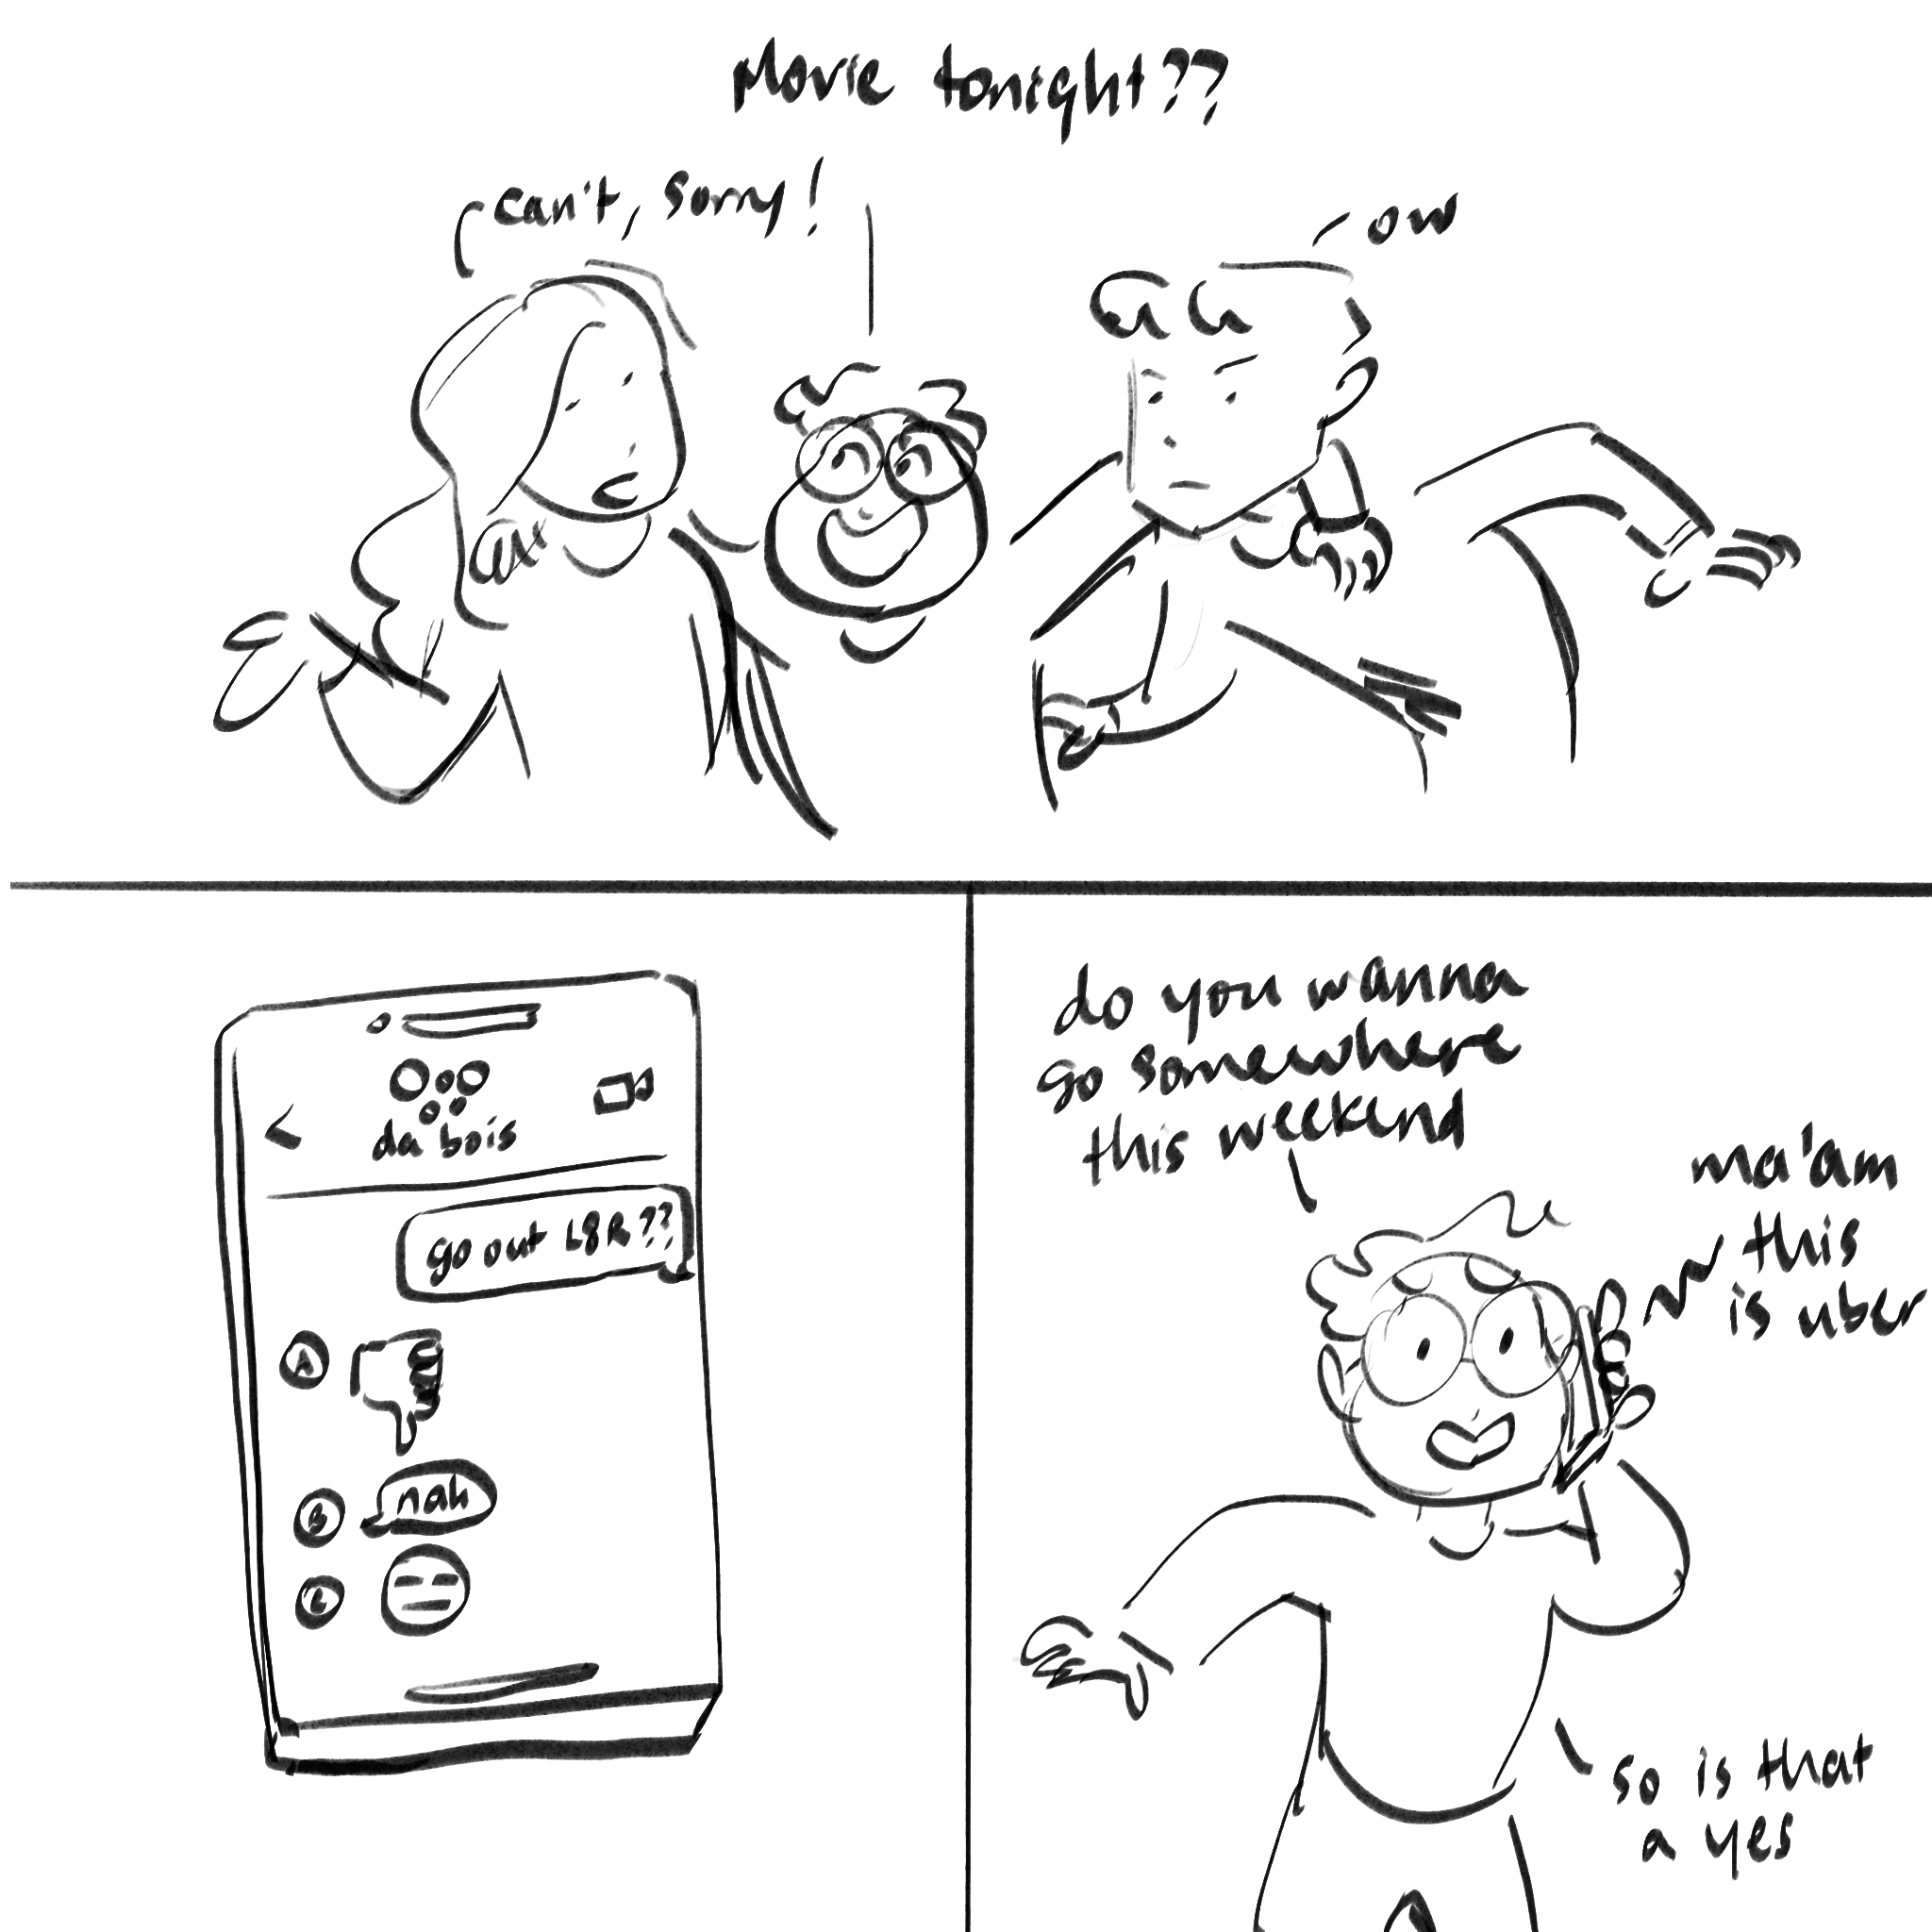 Movie tonight??
can't, sorry!
ow
da bois
go out L8R??
A
nah
B
C
do you wanna
go somewhere
this weekend
ma'am
this
is uber
so is that
a yes